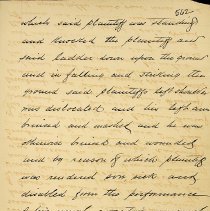 502
which said plaintiff was standing
and knocked the plaintiff and
said ladder down upon the ground
and in falling and striking the
ground said plaintiffs left shoulder
was dislocated and his left arm
bruised and mashed and he was
otherwise bruised and wounded
and by reason of which plaintiff
was rendered son sick and
disabled from the performance